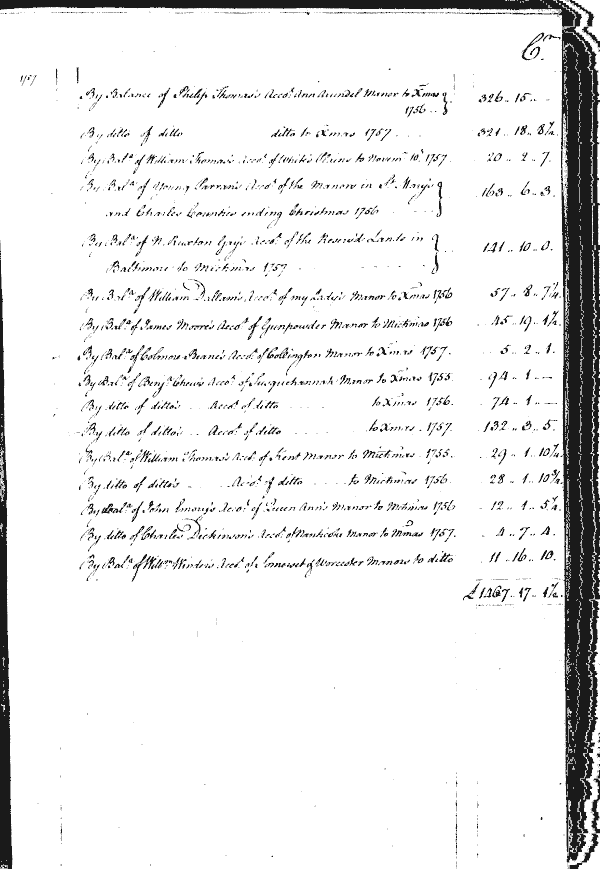 Cr.
1757
By Balance of Philip Thomas's Accot. Ann Arundel Manor to Xmas 1756 .. } 326 .. 15 .. —
By ditto of ditto ditto to Xmas 1757 .... 321 .. 18 .. 8½.
By Bala. of William Thomas's Accot. of White Plains to Novem. 10. 1757. 20 .. 2 .. 7.
By Bala. of Young Parran's Accot. of the Manors in St. Mary's
and Charles Counties ending Christmas 1756 ..... } 163 .. 6 .. 3.
By Bala. of N. Ruxton Gay's Accot. of the Reserv'd Lands in
Baltimore to Mickmas 1757 ..... } 141 .. 10 .. 0.
By Bala. of William Dallam's Accot. of my Lady's Manor to Xmas 1756 57 .. 8 .. 7¼.
By Bala. of James Moore's Accot. of Gunpowder Manor to Mickmas 1756 45 .. 19 .. 4½.
By Bala. of Colmore Beane's Accot. of Collington Manor to Xmas 1757. 5 .. 2 .. 1.
By Bala. of Benja. Chew's Accot. of Susquehannah Manor to Xmas 1755. 94 .. 1 .. —
By ditto of ditto's ... Accot. of ditto ..... to Xmas 1756. 74 .. 1 .. —
By ditto of ditto's ... Accot. of ditto ..... to Xmas . 1757. 132 .. 3 .. 5.
By Bala. of William Thomas's Accot. of Kent Manor to Mickmas 1755. 29 .. 1 .. 10¼.
By ditto of ditto's ..... Accot. of ditto ..... to Mickmas 1756. 28 .. 1 .. 10¾.
By Bala. of John Emory's Accot. of Queen Ann's Manor to Mickmas 1756 12 .. 1 .. 5¼.
By ditto of Charles Dickinson's Accot. of Nanticoke Manor to Mmas 1757. 4 .. 7 .. 4.
By Bala. of Willm. Winder's Accot. of Somerset & Worcester Manors to ditto 11 .. 16 .. 10.
£1467 .. 17 .. 4½.